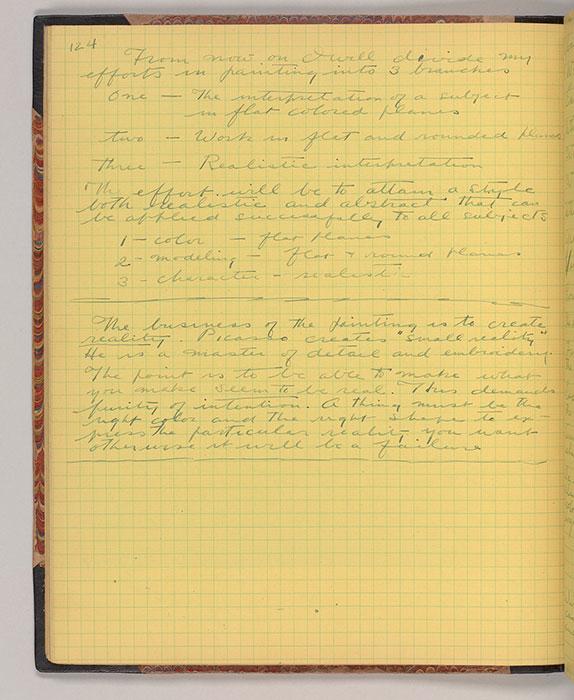 124
From now on I will divide my
efforts in painting into 3 branches
One — The interpretation of a subject
in flat colored planes
two — Work in flat and rounded planes
three — Realistic interpretation
The effort will be to attain a style
both realistic and abstract that can
be applied successfully to all subjects
1 - color - flat planes
2 - modeling - flat + round planes
3 - character - realistic
The business of the painting is to create
reality. Picasso creates "small reality"
He is a master of detail and embroidery.
The point is to be able to make what
you make seem to be real. This demands
purity of intention. A thing must be the
right color and the right shape to ex-
press the particular reality you want
otherwise it will be a failure